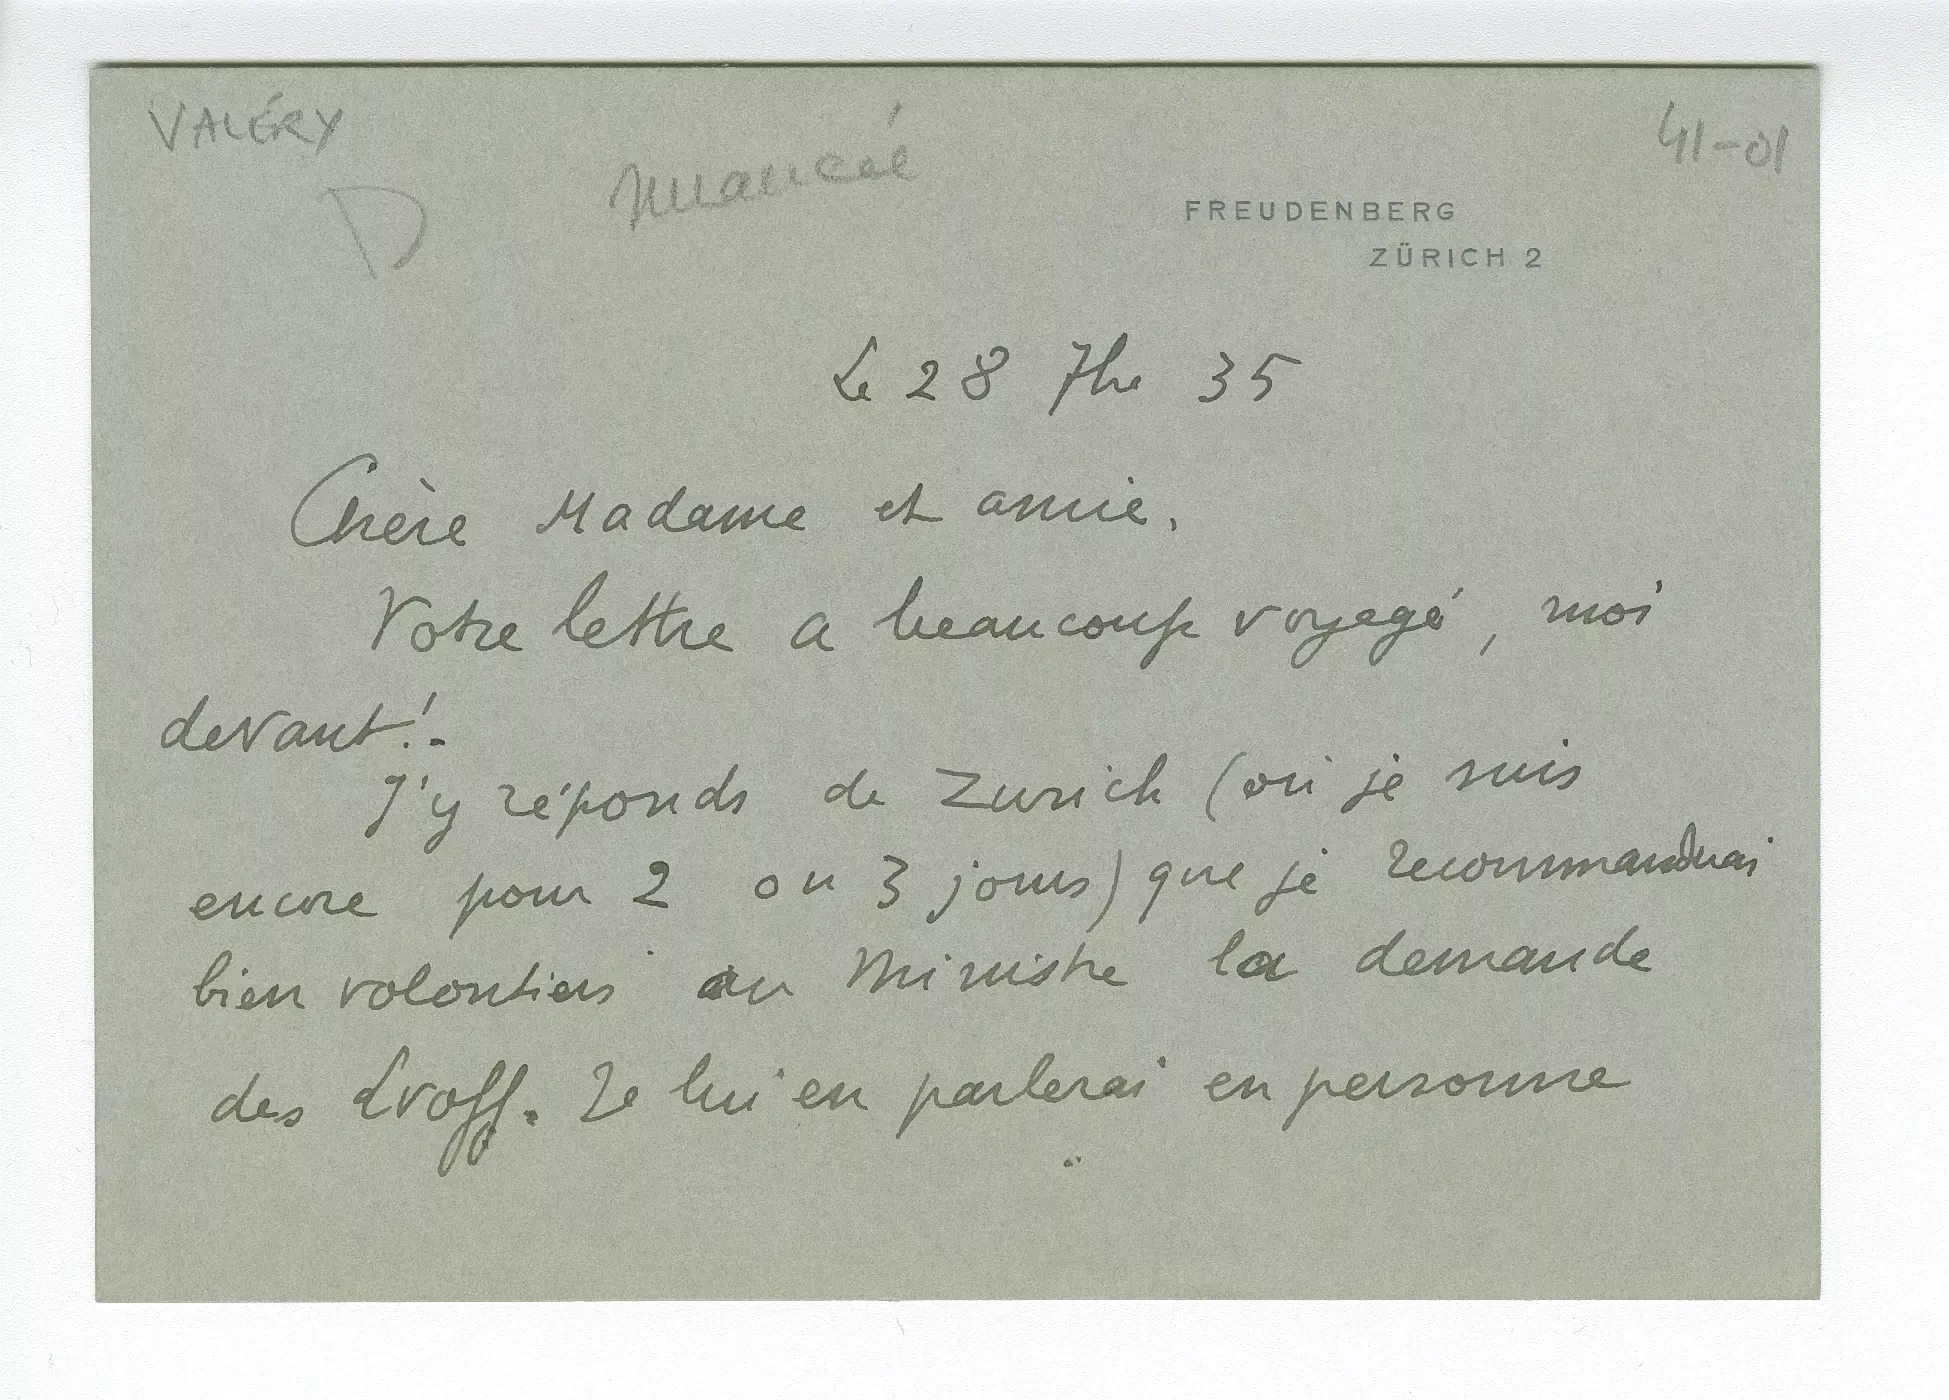 VALÉRY
nuancée
41-01
D
FREUDENBERG
ZÜRICH 2
Le 28 7bre 35
Chère Madame et amie,
Votre lettre a beaucoup voyagé, moi
devant!.
J'y réponds de Zurich (où je suis
encore pour 2 ou 3 jours) que je recommanderai
bien volontiers au Ministre la demande
des . Je lui en parlerai en personne